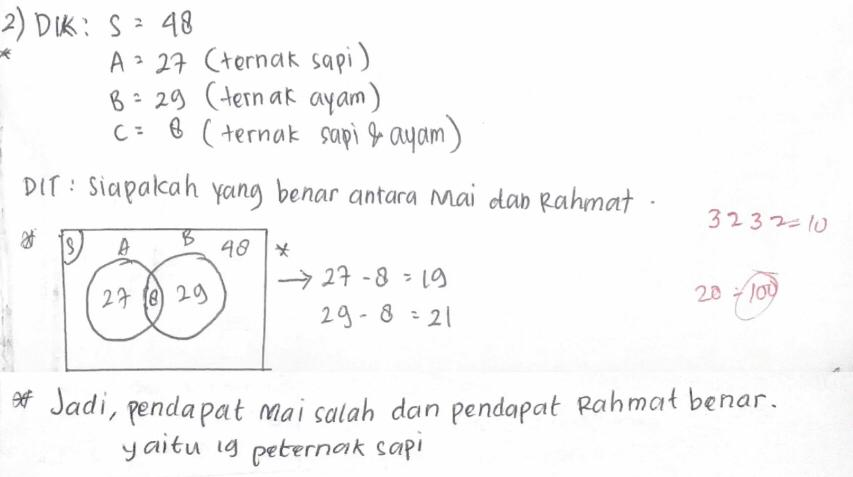 2) DIK : S = 48
* A = 27 (ternak sapi)
B = 29 (ternak ayam)
C = 8 (ternak sapi & ayam)
DIT : Siapakah yang benar antara Mai dan Rahmat .
* S A B 48
27 8 29
* → 27 - 8 = 19
29 - 8 = 21
3 2 3 2 = 10
20 = 100
* Jadi, pendapat Mai salah dan pendapat Rahmat benar.
yaitu 19 peternak sapi